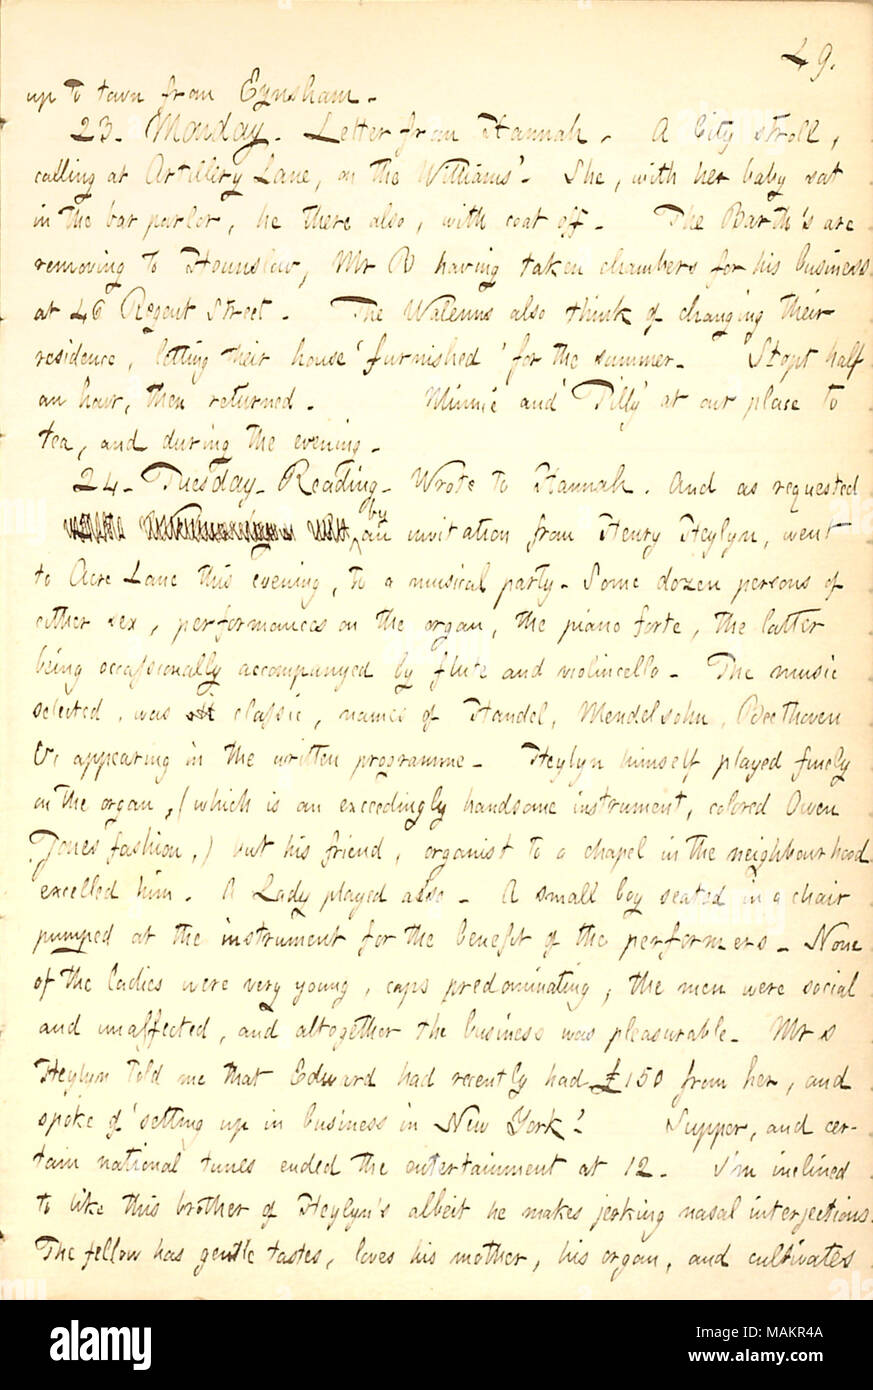 49.
up to town from Eynsham.
23. Monday. Letter from Hannah. A City stroll,
calling at Artillery Lane, on the Williams'. She, with her baby sat
in the bar parlor, he there also, with coat off. The Barth's are
removing to Hounslow, Mr B having taken chambers for his business
at 46 Regent Street. The Walenns also think of changing their
residence, letting their house 'furnished' for the summer. Stopt half
an hour, then returned. Minnie and 'Tilly' at our place to
tea, and during the evening.
24. Tuesday. Reading. Wrote to Hannah. And as requested
by
an invitation from Henry Heylyn, went
to Acre Lane this evening, to a musical party. Some dozen persons of
either sex, performances on the organ, the piano forte, the latter
being occassionally accompanyed by flute and violincello. The music
selected, was classic, names of Handel, Mendelsohn, Beethoven
&c appearing in the written programme. Heylyn himself played finely
on the organ, (which is an exceedingly handsome instrument, colored Owen
Jones' fashion,) but his friend, organist to a chapel in the neighbourhood
excelled him. A Lady played also. A small boy seated in a chair
pumped at the instrument for the benefit of the performers. None
of the ladies were very young, caps predominating; the men were social
and unaffected, and altogether the business was pleasurable. Mrs
Heylyn told me that Edward had recently had £150 from her, and
spoke of 'setting up in business in New York!' Supper, and cer-
tain national tunes ended the entertainment at 12. I'm inclined
to like this brother of Heylyn's albeit he makes jerking nasal interjections.
The fellow has gentle tastes, loves his mother, his organ, and cultivates
alamy
Image ID: MAKR4A
www.alamy.com